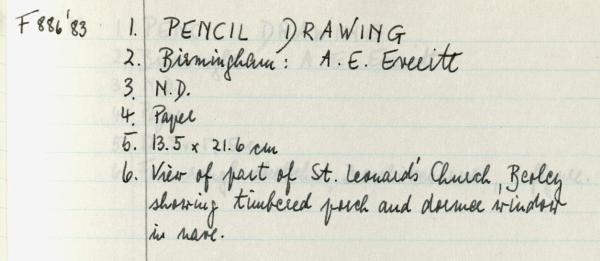 F 886'83 1. PENCIL DRAWING
2. Birmingham: A.E. Everitt
3. N.D.
4. Paper
5. 13.5 x 21.6 cm
6. View of part of St. Leonard's Church, Beoley
showing timbered porch and dormer window
in nave.